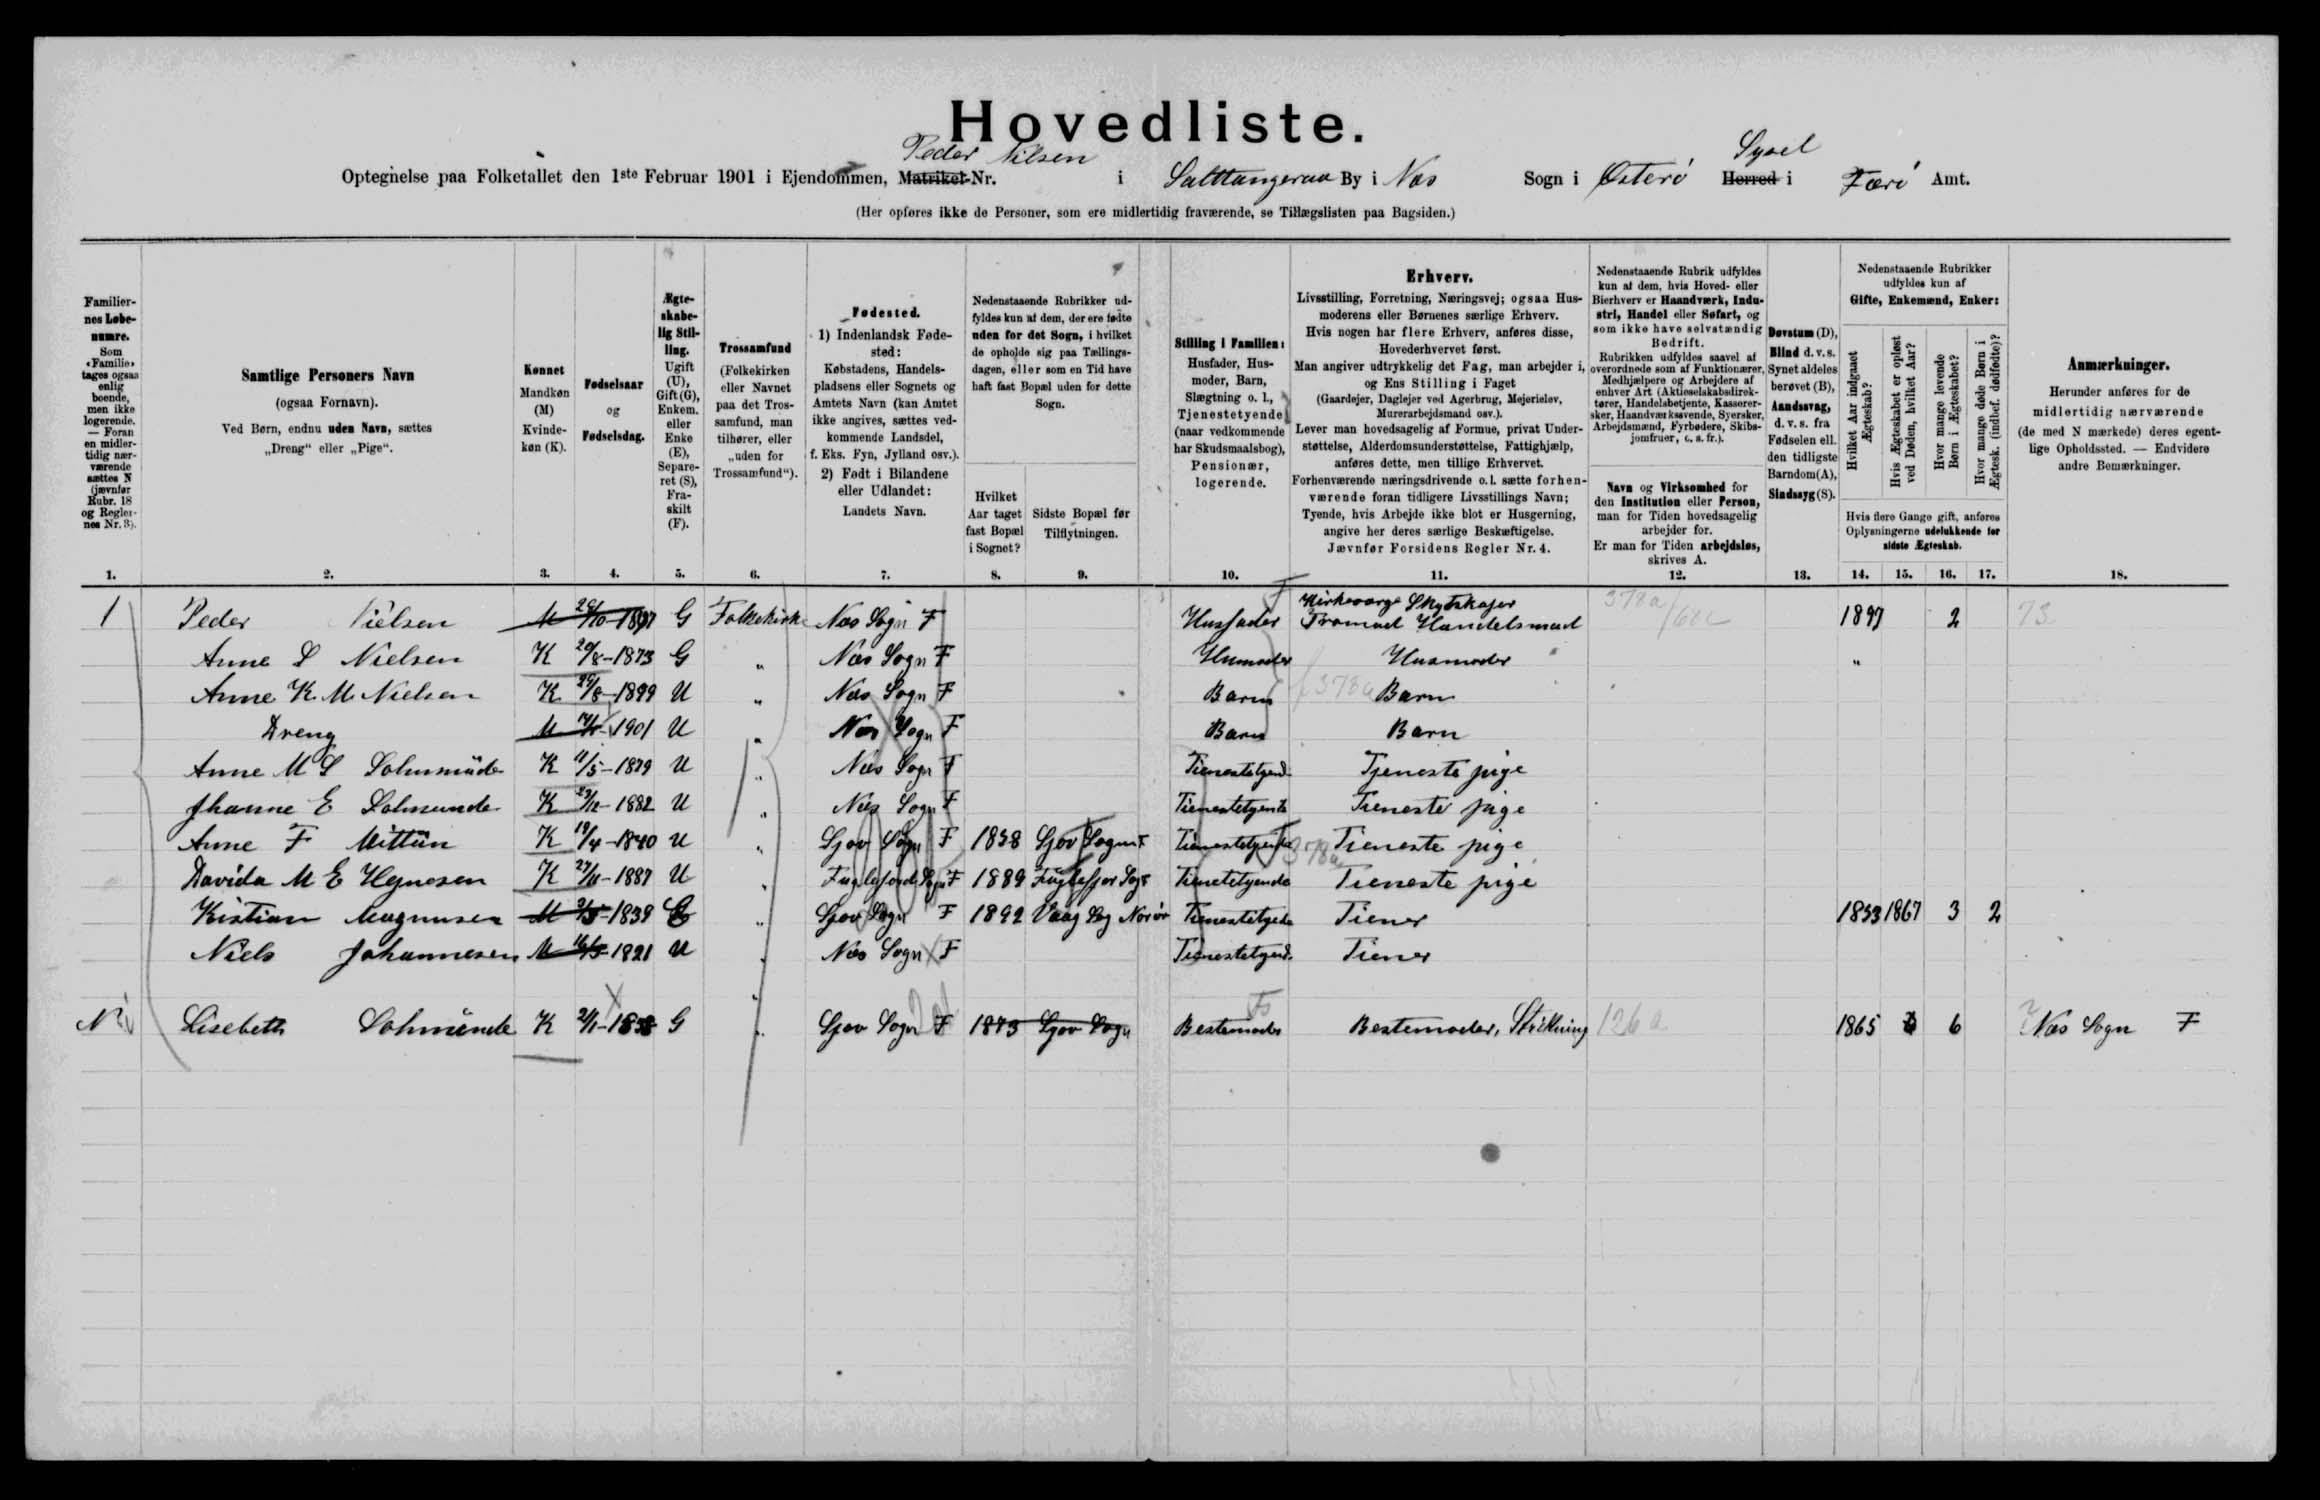 Hovedliste.
Peder Nilsen Sysel
Optegnelse paa Folketallet den 1ste Februar 1901 i Ejendommen, Matrikel-Nr. i Salttangeraa By i Næs Sogn i Østerö Herred i Færö Amt.
(Her opføres ikke de Personer, som ere midlertidig fraværende, se Tillægslisten paa Bagsiden.)
Familiernes Løbenumre.
Som «Familie» tages ogsaa enlig boende, men ikke logerende. — Foran en midlertidig nærværende sættes N (jævnfør Rubr. 18 og Reglernes Nr. 3).
Samtlige Personers Navn
(ogsaa Fornavn).
Ved Børn, endnu uden Navn, sættes
„Dreng“ eller „Pige“.
Kønnet
Mandkøn (M) Kvindekøn (K).
Fødselsaar
og
Fødselsdag.
Ægteskabelig Stilling.
Ugift (U), Gift (G), Enkem. eller Enke (E), Separeret (S), Fraskilt (F).
Trossamfund
(Folkekirken eller Navnet paa det Trossamfund, man tilhører, eller „uden for Trossamfund“).
Fødested.
1) Indenlandsk Fødested:
Købstadens, Handelspladsens eller Sognets og Amtets Navn (kan Amtet ikke angives, sættes vedkommende Landsdel, f. Eks. Fyn, Jylland osv.).
2) Født i Bilandene eller Udlandet:
Landets Navn.
Nedenstaaende Rubrikker udfyldes kun af dem, der ere fødte uden for det Sogn, i hvilket de opholde sig paa Tællingsdagen, eller som en Tid have haft fast Bopæl uden for dette Sogn.
Hvilket Aar taget fast Bopæl i Sognet?
Sidste Bopæl før Tilflytningen.
Stilling i Familien:
Husfader, Husmoder, Barn, Slægtning o. l., Tjenestetyende (naar vedkommende har Skudsmaalsbog), Pensionær, logerende.
Erhverv.
Livsstilling, Forretning, Næringsvej; ogsaa Husmoderens eller Børnenes særlige Erhverv.
Hvis nogen har flere Erhverv, anføres disse, Hovederhvervet først.
Man angiver udtrykkelig det Fag, man arbejder i, og Ens Stilling i Faget
(Gaardejer, Daglejer ved Agerbrug, Mejerielev, Murerarbejdsmand osv.).
Lever man hovedsagelig af Formue, privat Understøttelse, Alderdomsunderstøttelse, Fattighjælp, anføres dette, men tillige Erhvervet.
Forhenværende næringsdrivende o. l. sætte forhenværende foran tidligere Livsstillings Navn; Tyende, hvis Arbejde ikke blot er Husgerning, angive her deres særlige Beskæftigelse.
Jævnfør Forsidens Regler Nr. 4.
Nedenstaaende Rubrik udfyldes kun af dem, hvis Hoved- eller Bierhverv er Haandværk, Industri, Handel eller Søfart, og som ikke have selvstændig Bedrift.
Rubrikken udfyldes saavel af overordnede som af Funktionærer, Medhjælpere og Arbejdere af enhver Art (Aktieselskabsdirektører, Handelsbetjente, Kasserersker, Haandværkssvende, Syersker, Arbejdsmænd, Fyrbødere, Skibsjomfruer, o. s. fr.).
Navn og Virksomhed for den Institution eller Person, man for Tiden hovedsagelig arbejder for.
Er man for Tiden arbejdsløs, skrives A.
Døvstum (D), Blind d. v. s. Synet aldeles berøvet (B), Aandssvag, d. v. s. fra Fødselen ell. den tidligste Barndom (A), Sindssyg (S).
Nedenstaaende Rubrikker udfyldes kun af
Gifte, Enkemænd, Enker:
Hvilket Aar indgaaet Ægteskab?
Hvis Ægteskabet er opløst ved Døden, hvilket Aar?
Hvor mange levende Børn i Ægteskabet?
Hvor mange døde Børn i Ægtesk. (indbef. dødfødte)?
Hvis flere Gange gift, anføres Oplysningerne udelukkende for sidste Ægteskab.
Anmærkninger.
Herunder anføres for de midlertidig nærværende (de med N mærkede) deres egentlige Opholdssted. — Endvidere andre Bemærkninger.
1. 2. 3. 4. 5. 6. 7. 8. 9. 10. 11. 12. 13. 14. 15. 16. 17. 18.
Kirkeværge Skytskafer 378a
1 Peder Nielsen M G Folkekirke Næs Sogn F Husfader Handelsmad 1897 2 73
Anne S Nielsen K 20/8-1873 G „ Næs Sogn F Husmoder Husmoder „
Anne K. M. Nielsen K 8-1899 U „ Næs Sogn F Barn 378a Barn
Dreng M 1901 U „ Næs Sogn F Barn Barn
Anne M S K 11/5-1879 U „ Næs Sogn F Tienestetyend Tjeneste pige
Jhanne E K 1882 U „ Næs Sogn F Tienestetyende Tieneste pige
Anne F Mittún K 19/4-1840 U „ Gjov Sogn F 1858 Gjov Sogn F Tienestetyende 378a Tieneste pige
Davida M E K 27/11-1887 U „ Fuglefjords Sogn F 1889 Tienestetyende Tieneste pige
Kristian Magnusen M 1839 E „ Gjov Sogn F 1892 Vaag Tienestetyende Tiener 1853 1867 3 2
Niels Johannesen M 16/5-1821 U „ Næs Sogn F Tienestetyend. Tiener
N Lisebeth K 2/1-1838 G „ Gjov Sogn F 1873 Gjov Sogn Bestemoder Bestemoder, Strikning 126a 1865 6 Næs Sogn F